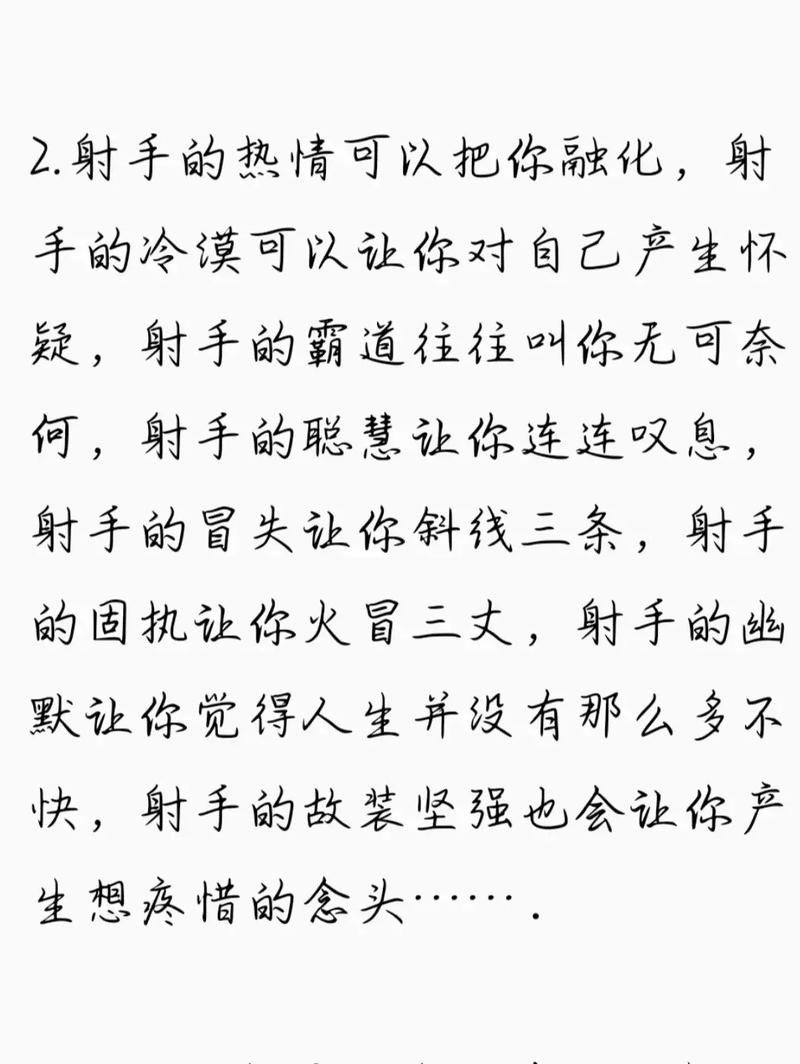 2.射手的热情可以把你融化，射
手的冷漠可以让你对自己产生怀
疑，射手的霸道往往叫你无可奈
何，射手的聪慧让你连连叹息，
射手的冒失让你斜线三条，射手
的固执让你火冒三丈，射手的幽
默让你觉得人生并没有那么多不
快，射手的故装坚强也会让你产
生想疼惜的念头…….